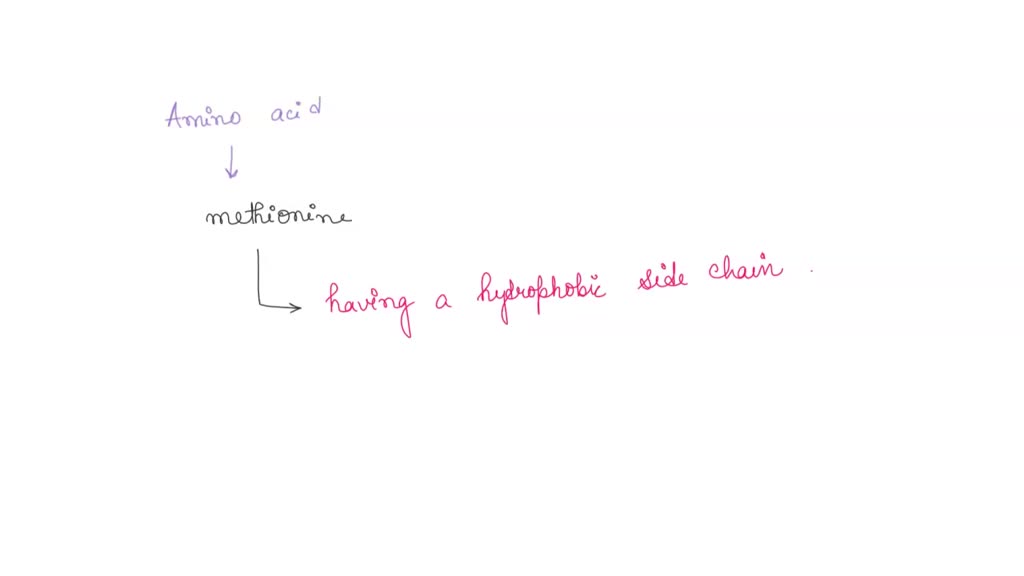 Amino acid
methionine
having a hydrophobic side chain.